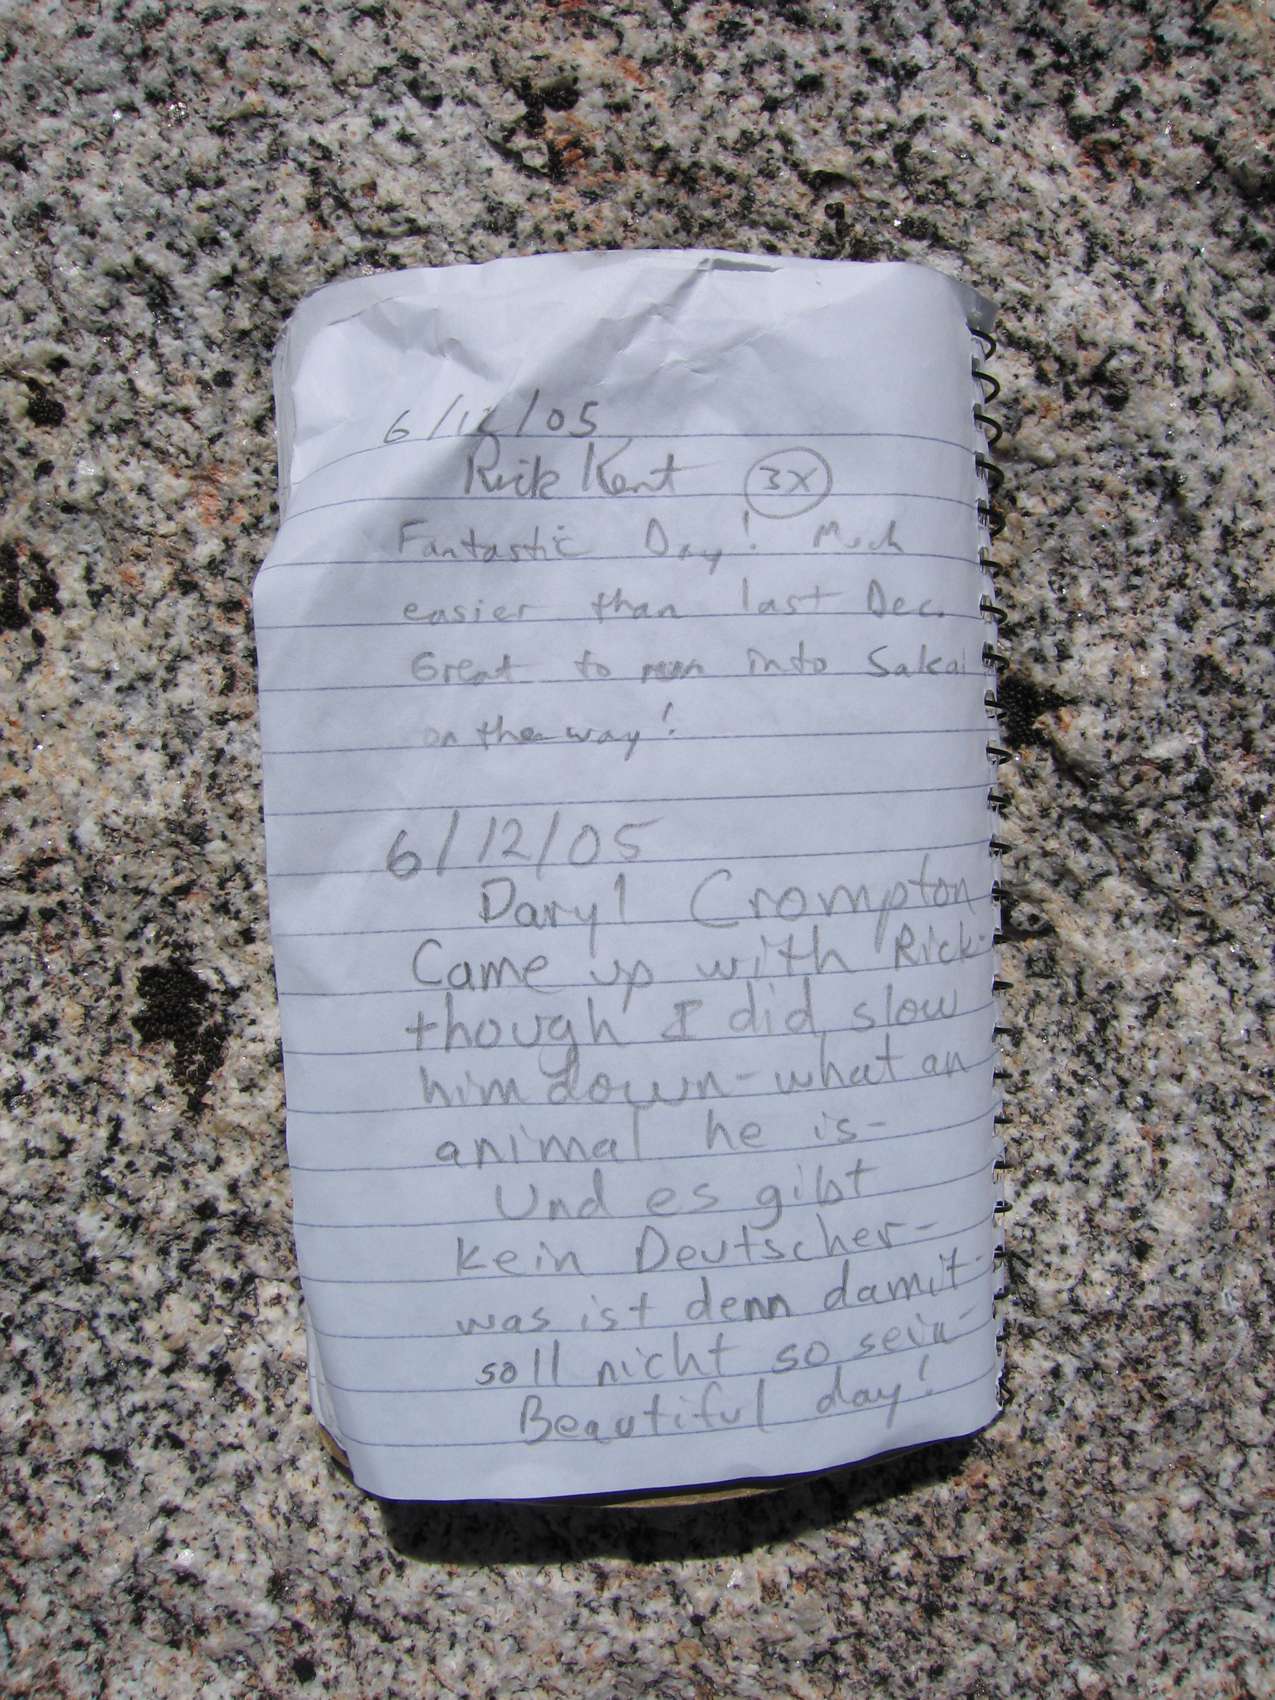 6/12/05
Rick Kent 3x
Fantastic Day! Much
easier than last Dec.
Great to run into Sakai
on the way!
6/12/05
Daryl Crompton
Came up with Rick-
though I did slow
him down - what an
animal he is-
Und es gibt
kein Deutscher-
was ist denn damit-
soll nicht so sein-
Beautiful day!